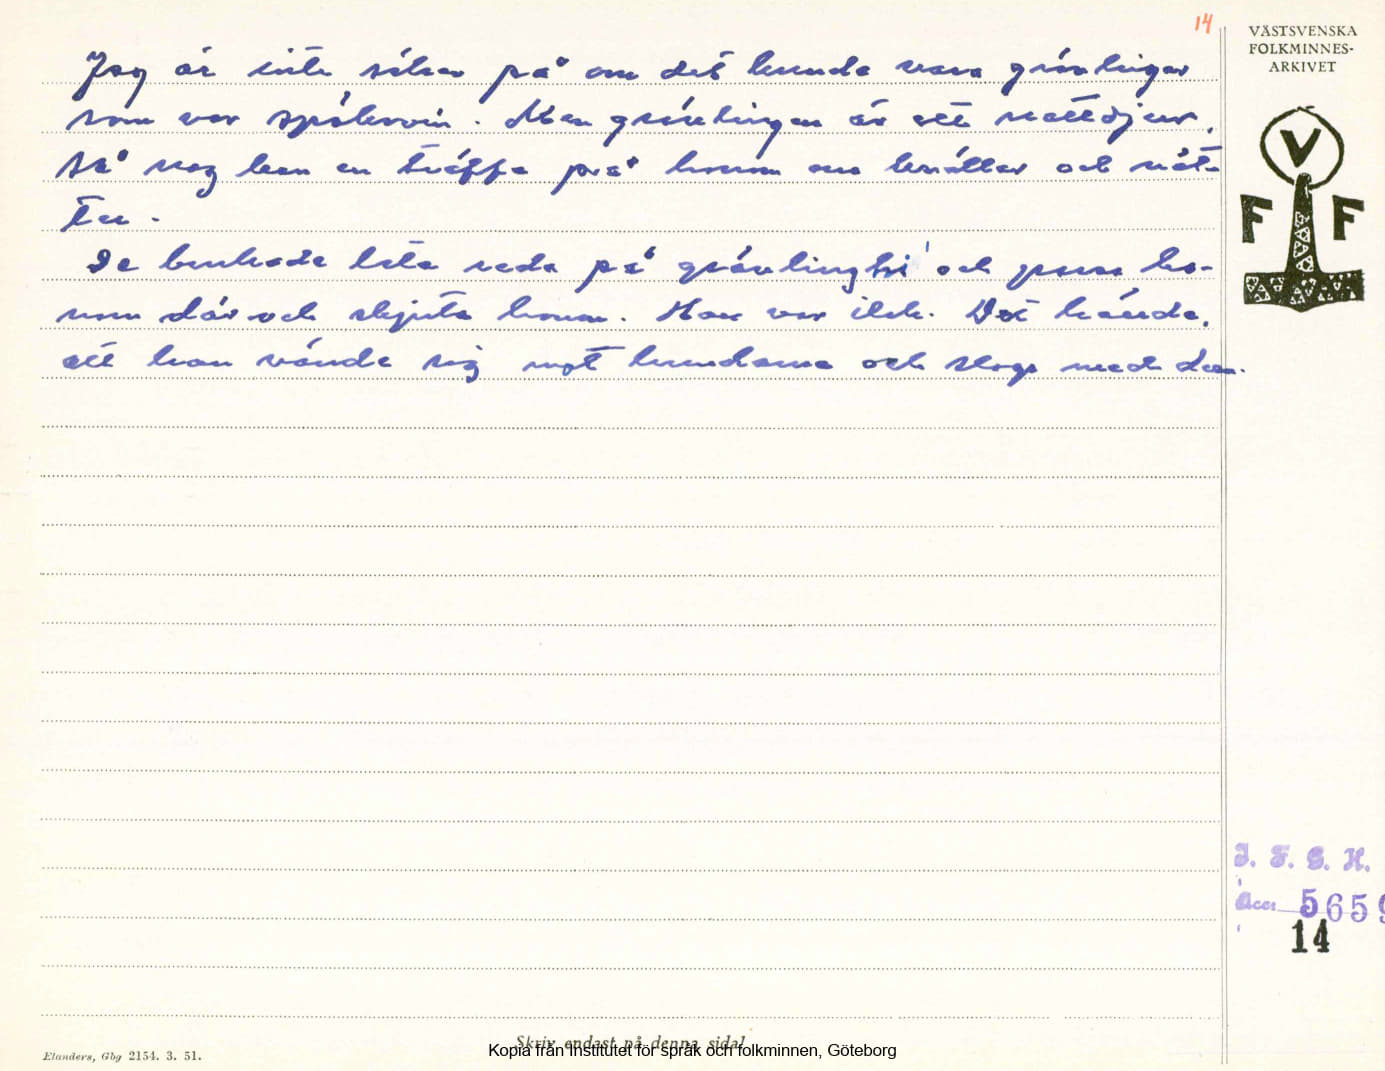 14
VÄSTSVENSKA
FOLKMINNES-
ARKIVET
V
F F
Jag är inte säker på om det kunde vara grävlingar
som var spöksvin. Men grävlingen är ett nattdjur,
så nog kan en träffa på honom om kvällar och nät-
ter.
De brukade leta reda på grävlinghi' och pressa ho-
nom där och skjuta honom. Han var ilsk. Det hände,
att han vände sig mot hundarna och slogs med dem.
I. F. G. H.
Acc: 5659
14
Skriv endast på denna sida!
Elanders, Gbg 2154. 3. 51.
Kopia från Institutet för språk och folkminnen, Göteborg